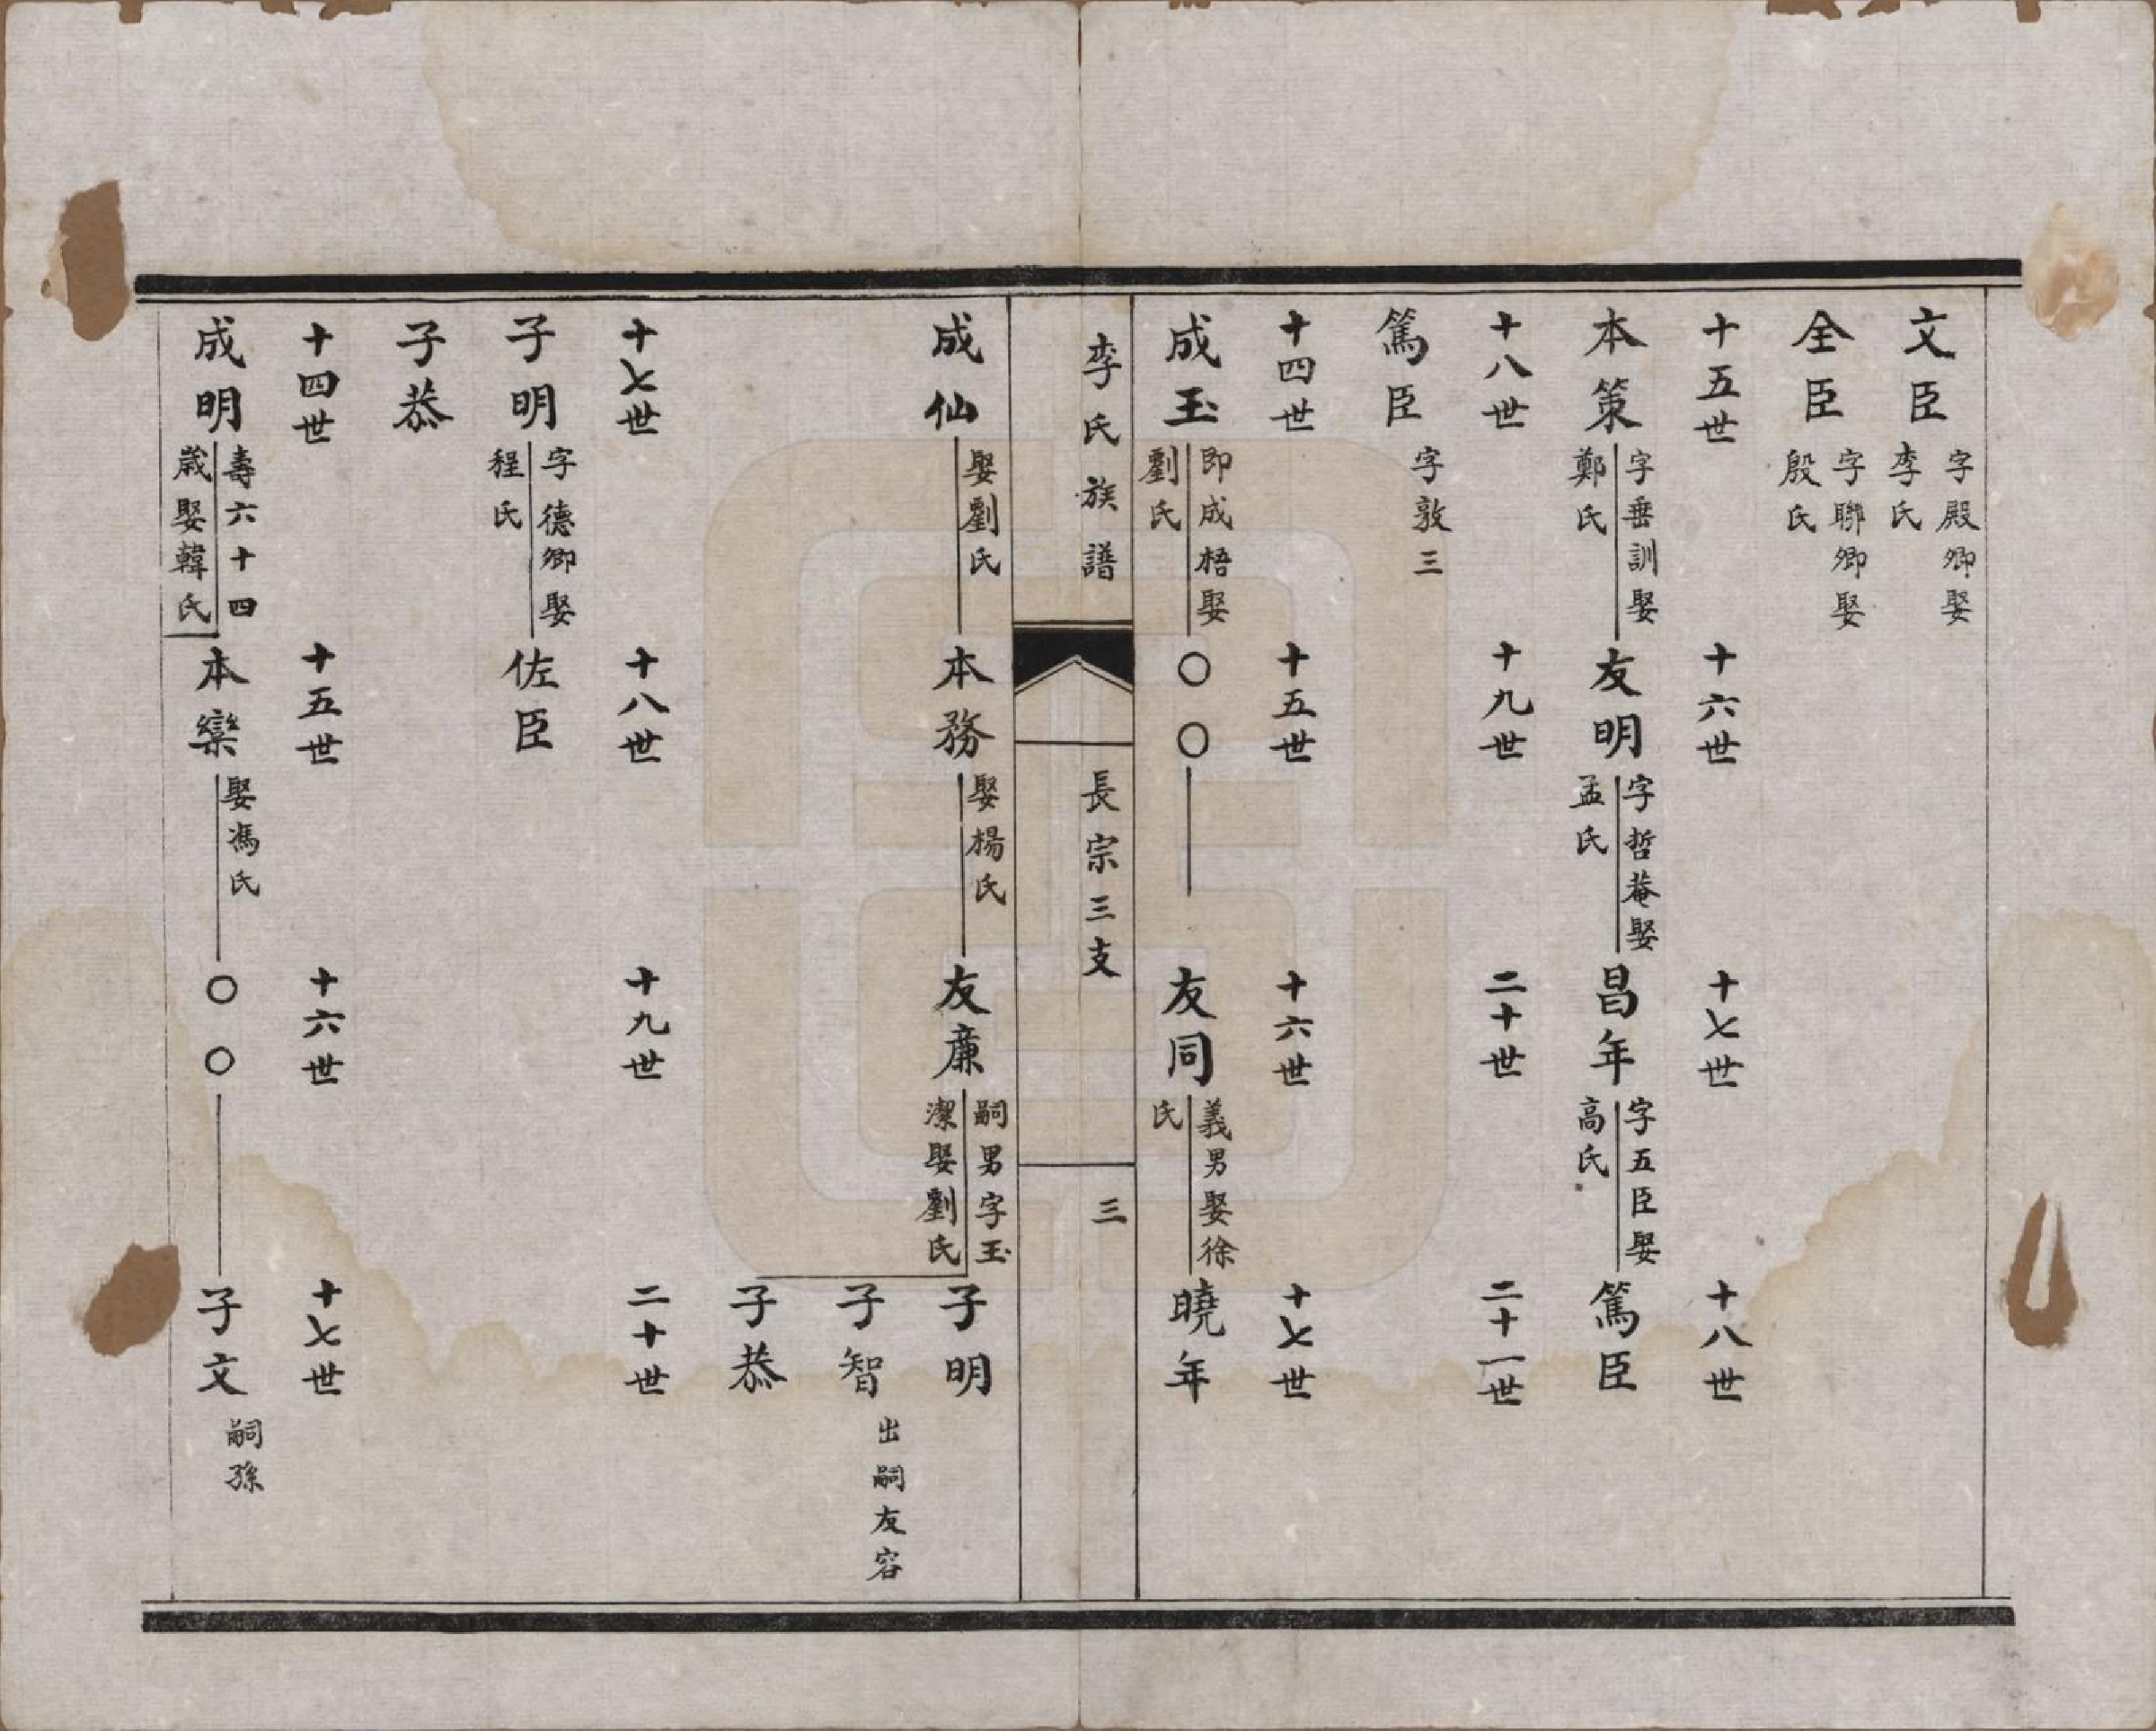 文臣 字殿卿娶李氏
全臣 字聯卿娶殷氏
十五世 十六世 十七世 十八世
本策 字垂訓娶鄭氏 友明 字哲菴娶孟氏 昌年 字五臣娶高氏 篤臣
十八世 十九世 二十世 二十一世
篤臣 字敦三
十四世 十五世 十六世 十七世
成玉 即成梧娶劉氏 〇〇 友同 義男娶徐氏 曉年
李氏族譜 長宗三支 三
成仙 娶劉氏 本務 娶楊氏 友廉 嗣男字玉潔娶劉氏 子明
子智 出嗣友容
子恭
十七世 十八世 十九世 二十世
子明 字德卿娶程氏 佐臣
子恭
十四世 十五世 十六世 十七世
成明 壽六十四歲娶韓氏 本欒 娶馮氏 〇〇 子文 嗣孫